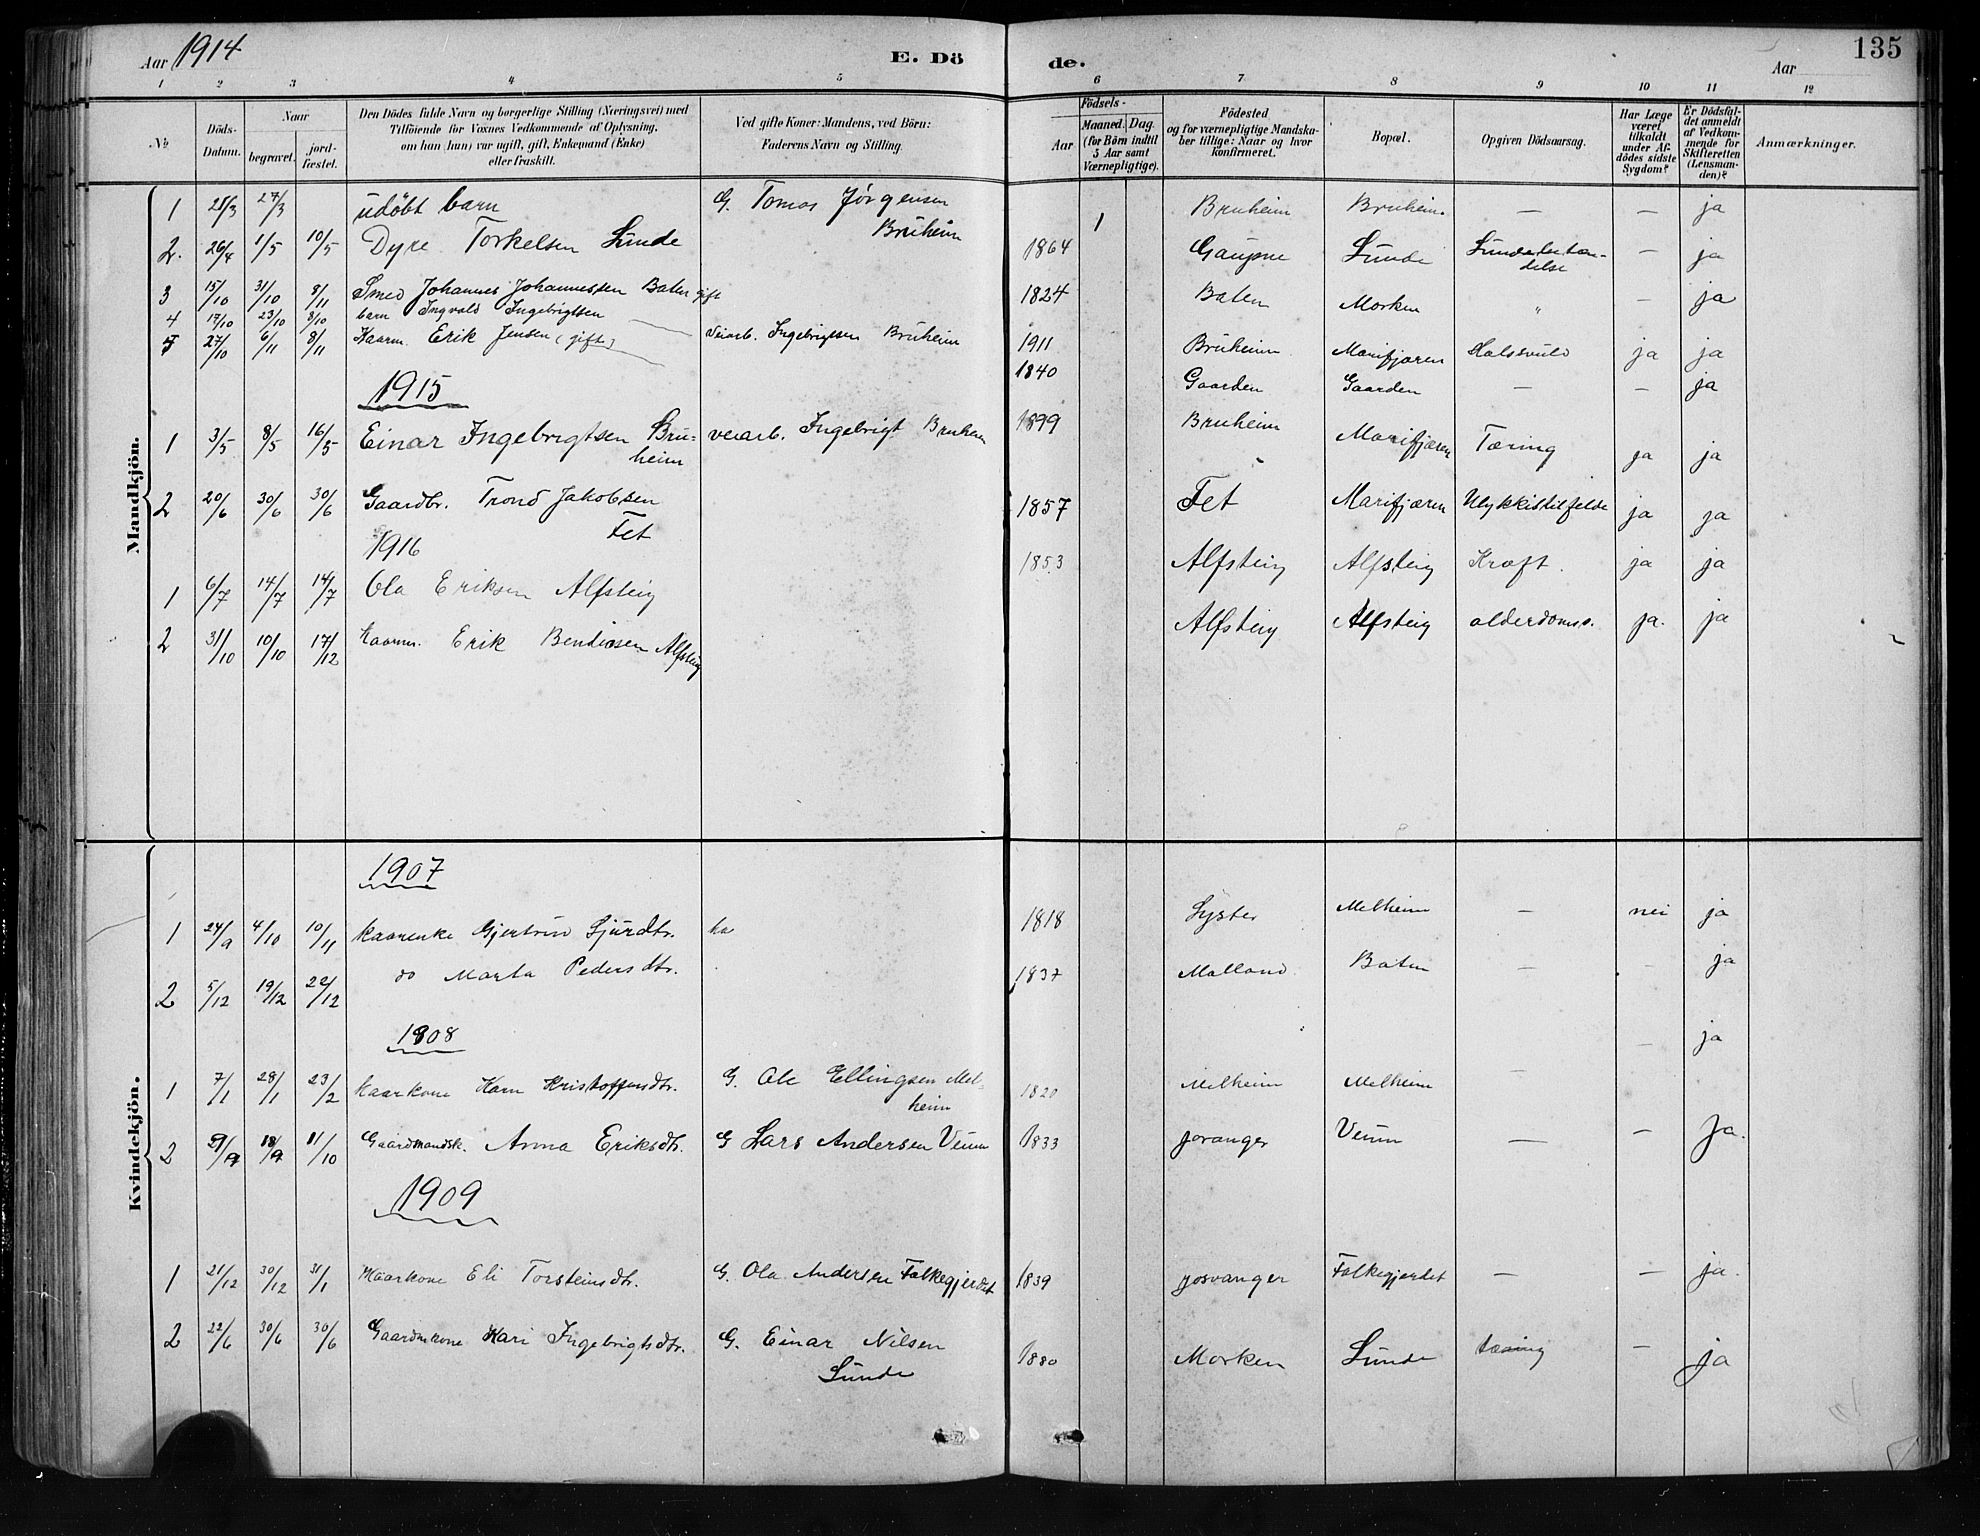 Aar 1914 E. Dö de. Aar 135
1 2 3 4 5 6 7 8 9 10 11 12
No Döds-Datum. Naar begravet. jord-fæstet. Den Dödes fulde Navn og borgerlige Stilling (Næringsvei) med Tilföiende for Voxnes Vedkommende af Oplysning, om han (hun) var ugift, gift, Enkemand (Enke) eller fraskilt. Ved gifte Koner: Mandens, ved Börn: Faderens Navn og Stilling. Födsels- Aar Maaned. Dag. (for Börn indtil 5 Aar samt Værnepligtige). Födested og for værnepligtige Mandska-ber tillige: Naar og hvor konfirmeret. Bopæl. Opgiven Dödsaarsag. Har Læge været tilkaldt under Af-dödes sidste Sygdom? Er Dödsfal-det anmeldt af Vedkom-mende for Skifteretten (Lensman-den)? Anmærkninger.
Mandkjön.
1 25/3 27/3 udöbt barn G. Tomas Jørgensen Bruheim 1 Bruheim Bruheim — — ja
2. 26/4 1/5 10/5 Dyre Torkelsen Sunde 1864 Gaupne Sunde — ja
3 15/10 31/10 8/11 Smed Johannes Johannessen Baten gift 1824 Baten Morken " — ja
4 17/10 23/10 8/10 barn Ingvald Ingebrigtsen — Veiarb. Ingebrigtsen Bruheim 1911 Bruheim Marifjæren Halsevuld ja ja
5 27/10 6/11 8/11 Kaarm. Erik Jensen (gift) 1840 Gaarden Gaarden — — ja
1915
1 3/5 8/5 16/5 Einar Ingebrigtsen Bru-heim veiarb. Ingebrigt Bruheim 1899 Bruheim Marifjæren Tæring ja ja
2 20/6 30/6 30/6 Gaardbr. Trond Jakobsen Fet 1857 Fet Marifjæren Ulykkistilfelde ja ja
1916
1 6/7 14/7 14/7 Ola Eriksen Alfsteig 1853 Alfsteig Alfsteig Kræft. ja ja
2 31/10 10/10 17/12 kaarm. Erik Bendiksen Alfsteig Alfsteig Alfsteig alderdoms. ja. ja
Kvindekjön.
1907
1 24/9 4/10 10/11 kaarenke Gjertrud Sjurdtr. 1818 Lyster Melheim — nei ja
2 5/12 19/12 22/12 do Marta Pedersdtr. 1837 Molland Baten — — ja
1908
1 7/1 28/1 23/2 kaarkone Kristoffersdtr. G. Ole Ellingsen Mel-heim 1820 Melheim Melheim — — ja
2 9/9 18/9 11/10 Gaardmandsk. Anna Eriksdtr. G Lars Andersen Veum 1833 joranger Veum — — ja.
1909
1 21/12 30/12 31/1 Kaarkone Eli Torsteinsdtr. G. Ola Andersen Falkegjerdet 1839 josvanger Falkegjerdet — — ja.
2 22/6 30/6 30/6 Gaardmkone Kari Ingebrigtsdtr. G. Einar Nilsen Sunde 1880 Morken Sunde tæring — ja